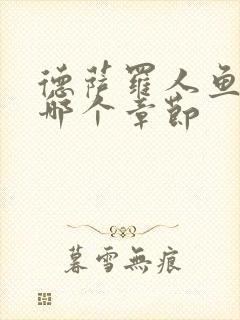 德萨罗人鱼
哪个章节
暮雪無痕